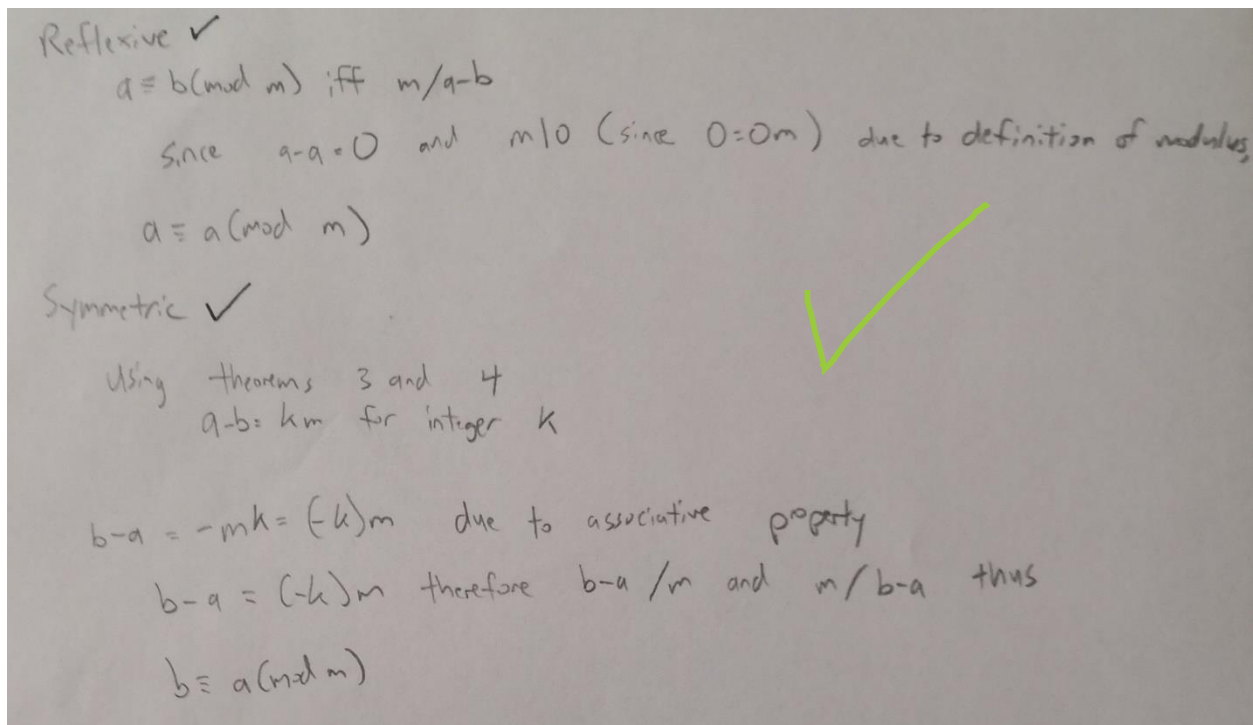 Reflexive ✓
a ≡ b(mod m) iff m/a-b
since a-a=0 and m|0 (since 0=0m) due to definition of modulus,
a ≡ a(mod m)
Symmetric ✓
Using theorems 3 and 4
a-b= km for integer k
b-a = -mk = (-k)m due to associative property
b-a = (-k)m therefore b-a/m and m/b-a thus
b ≡ a(mod m)